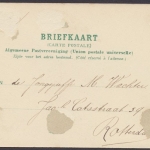 BRIEFKAART.
(CARTE POSTALE)
Algemeene Postvereeniging (Union postale universelle)
Zijde voor het adres bestemd. (Côté réservé à l'adresse.)
de M.
Jacob Catsstraat 39
Rotterdam